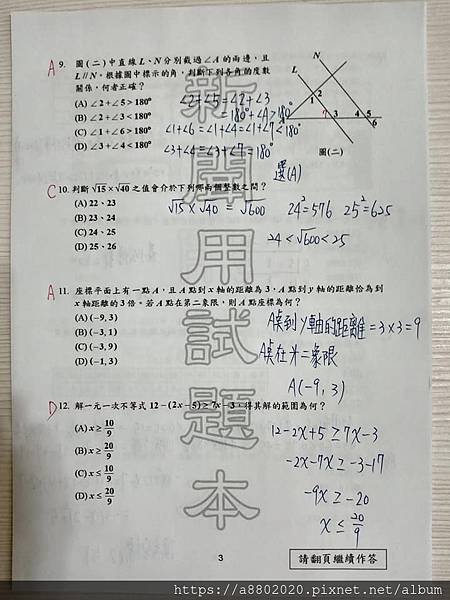 A 9. 圖(二)中直線L、N分別截過∠A的兩邊，且
L//N。根據圖中標示的角，判斷下列各角的度數
關係，何者正確？
(A) ∠2+∠5>180°
(B) ∠2+∠3<180°
(C) ∠1+∠6>180°
(D) ∠3+∠4<180°
∠2+∠5=∠2+∠3
=180°+∠A>180°
∠1+∠6=∠1+∠4=∠1+∠7<180°
∠3+∠4=∠3+∠7=180°
選(A)
L
N
1
2
7
3
4
5
6
圖(二)
C 10. 判斷√15×√40之值會介於下列哪兩個整數之間？
(A) 22、23
(B) 23、24
(C) 24、25
(D) 25、26
√15×√40=√600
24²=576 25²=625
24<√600<25
A 11. 座標平面上有一點A，且A點到x軸的距離為3，A點到y軸的距離恰為到
x軸距離的3倍。若A點在第二象限，則A點座標為何？
(A) (−9, 3)
(B) (−3, 1)
(C) (−3, 9)
(D) (−1, 3)
A點到y軸的距離=3×3=9
A點在第二象限
A(-9, 3)
D 12. 解一元一次不等式12−(2x−5)≥7x−3，得其解的範圍為何？
(A) x≥10/9
(B) x≥20/9
(C) x≤10/9
(D) x≤20/9
12-2x+5≥7x-3
-2x-7x≥-3-17
-9x≥-20
x≤20/9
新聞用試題本
3
請翻頁繼續作答
https://a8802020.pixnet.net/album